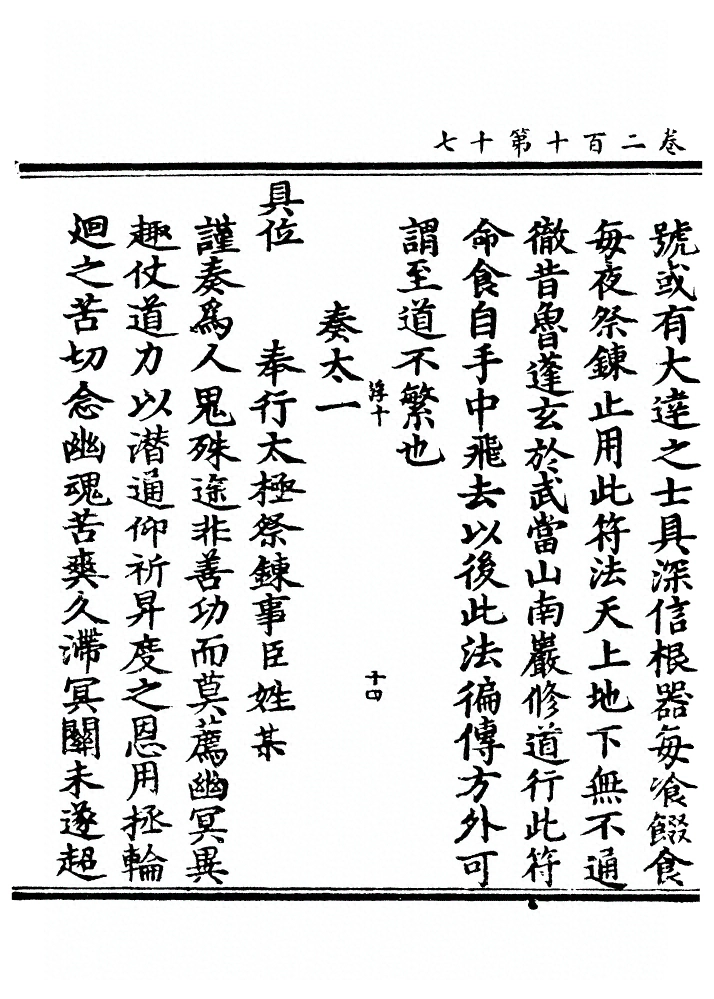 卷二百十第十七
號或有大達之士具深信根器每飡餟食
每夜祭鍊止用此符法天上地下無不通
徹昔魯蓬玄於武當山南巖修道行此符
命食自手中飛去以後此法徧傳方外可
謂至道不繁也
浮十
十四
奏太一
具位
奉行太極祭鍊事臣姓某
謹奏爲人鬼殊途非善功而莫薦幽冥異
趣仗道力以潜通仰祈昇度之恩用拯輪
迴之苦切念幽魂苦爽久滯冥關未遂超